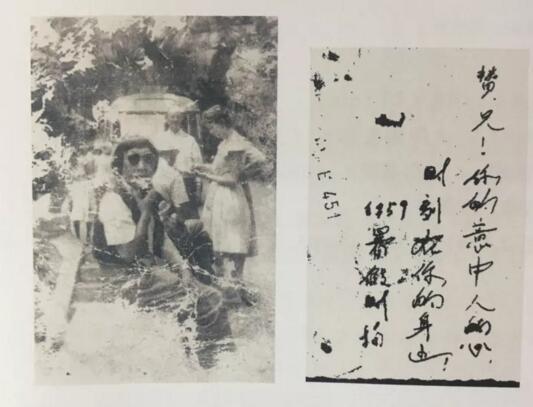 赞兄！你的意中人的心
时刻在你的身边！
1959
暑假时拍
E 451